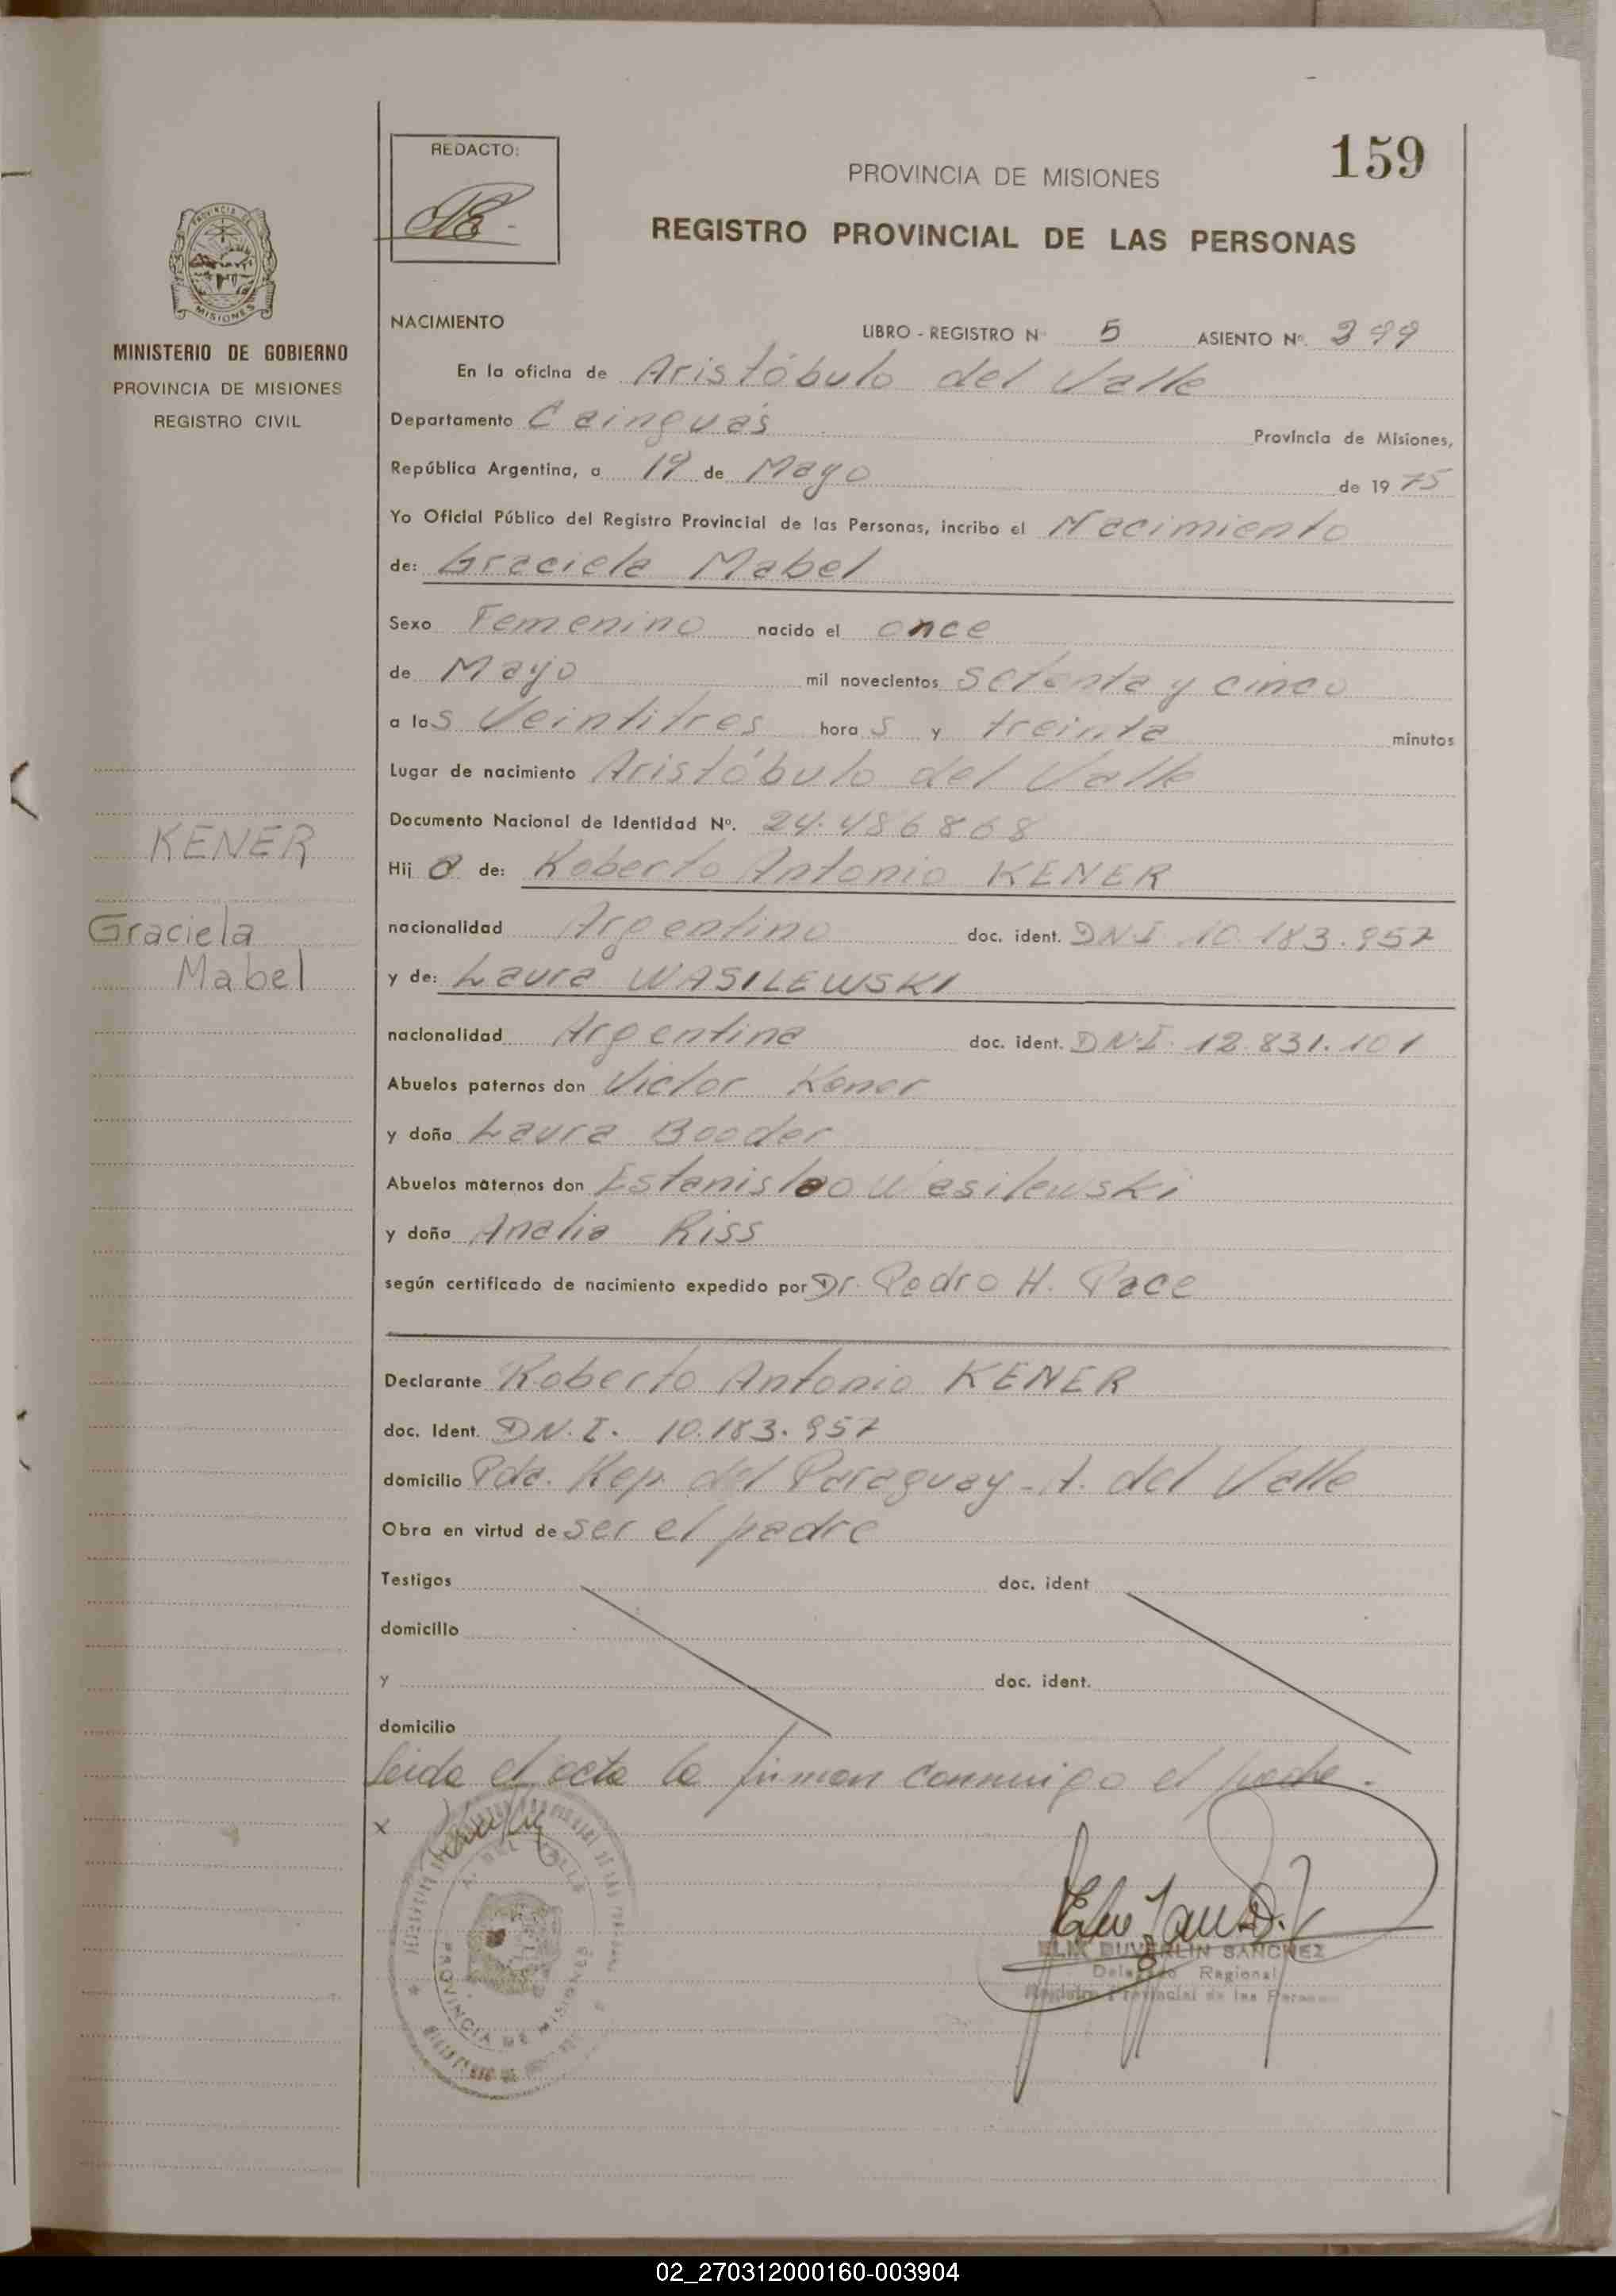 159
REDACTO:
PROVINCIA DE MISIONES
REGISTRO PROVINCIAL DE LAS PERSONAS
PROVINCIA DE
MISIONES
MINISTERIO DE GOBIERNO
PROVINCIA DE MISIONES
REGISTRO CIVIL
NACIMIENTO
LIBRO - REGISTRO Nº 5 ASIENTO Nº. 399
En la oficina de Aristóbulo del Valle
Departamento Cainguás Provincia de Misiones,
República Argentina, a 19 de Mayo de 1975
Yo Oficial Público del Registro Provincial de las Personas, incribo el Nacimiento
de: Graciela Mabel
Sexo Femenino nacido el once
de Mayo mil novecientos setenta y cinco
a las Veintitres horas y treinta minutos
Lugar de nacimiento Aristóbulo del Valle
Documento Nacional de Identidad Nº. 24.486868
KENER
Graciela
Mabel
Hija de: Roberto Antonio KENER
nacionalidad Argentino doc. ident. DN.I 10.183.957
y de: Laura WASILEWSKI
nacionalidad Argentina doc. ident. DN.I. 12.831.101
Abuelos paternos don Victor Kener
y doña Laura Booder
Abuelos maternos don Estanislao Wasilewski
y doña Analia Riss
según certificado de nacimiento expedido por Dr. Pedro H. Pace
Declarante Roberto Antonio KENER
doc. Ident. DN.I. 10.183.957
domicilio Pda. Rep. del Paraguay - A. del Valle
Obra en virtud de ser el padre
Testigos doc. ident
domicilio
y doc. ident.
domicilio
Leida el acta la firman conmigo el padre.
x
A. DEL VALLE
PROVINCIA DE MISIONES
ELIX DUVERLIN SANCHEZ
Delegado Regional
Registro Provincial de las Personas
02_270312000160-003904